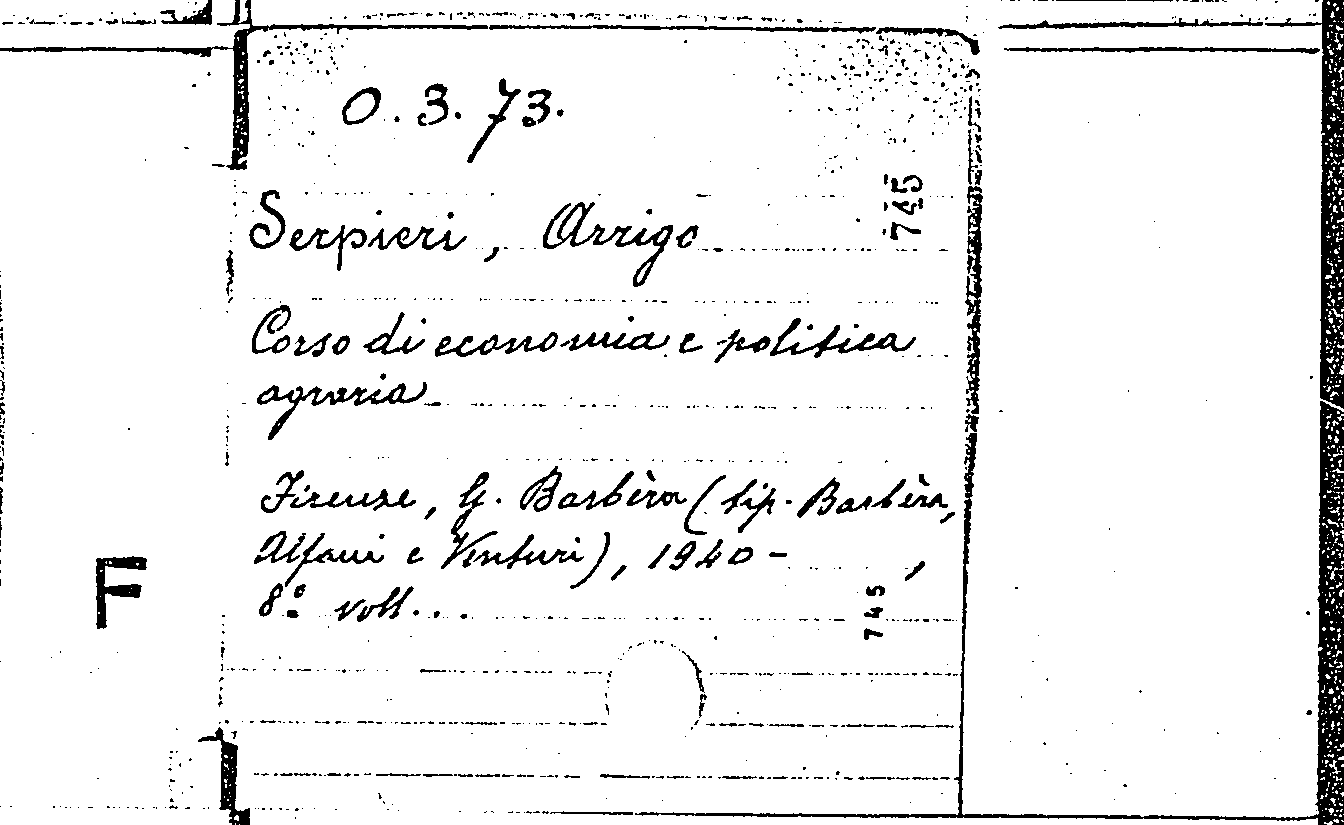 O. 3. 73.
745
Serpieri, Arrigo
Corso di economia e politica
agraria
Firenze, G. Barbèra (tip. Barbèra,
Alfani e Venturi), 1940 - ,
8° voll. . .
745
F